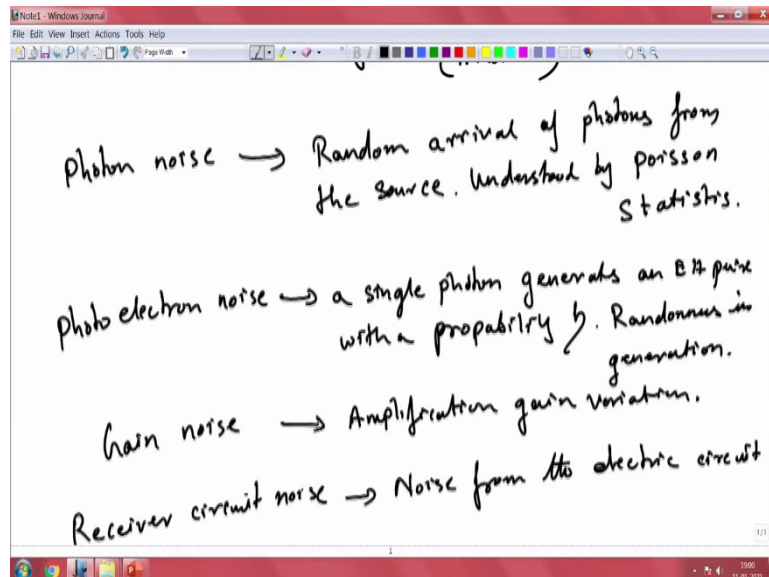 Note1 - Windows Journal
File Edit View Insert Actions Tools Help
Page Width
B I
Photon noise → Random arrival of photons from
the source. Understood by poisson
Statistis.
Photo electron noise → a single photon generats an EH paire
with a propability η. Randonnes in
generation.
Gain noise → Amplification gain variation.
Receiver circuit noise → Noise from the electric circuit
1/1
1
19:00
11-01-2021